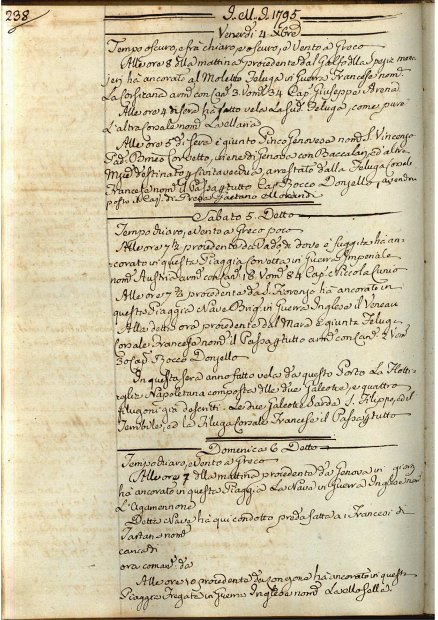 238
J. M. J. 1795
Venerdì 4 Xbre
Tempo oscuro, e frà chiaro, e oscuro, e Vento a Greco
Alle ore 8 della mattina procedente dal Golfo della Spezia
ha ancorato al Moletto Feluga in Guerra Francese nom.
La Corsitana arm. con Cap. 3 Vom. 34 Cap. Giuseppe Arena
Alle ore 4 di sera ha fatto vela la Sud. Feluga, come pure
L'altra Corsale nom. La Vellana
Alle ore 5 di sera è giunto Pinco Genovese nom. S. Vincenzo
Pad. Romeo Corvetto, viene di Genova con Baccalari, ed altre
Mrc. destinato p. Civitavecchia, arrestato dalla Feluga Corsale
Francese nom. il Passa p. tutto Cap. Rocco Donzello,
posto il Cap. di Preda Gaetano Morandi
Sabato 5. Detto
Tempo chiaro, e Vento a Greco poco
Alle ore 7½ procedente da Vado, di dove è fuggita, ha an-
corato in questa Piaggia Corvetta in Guerra Imperiale
nom. Austria arm. con Cap. 18 Vom. 84 Cap. Niccola Cunio
Alle ore 7½ procedente da S. Fiorenzo ha ancorato in
questa Piaggia Nave Brig. in Guerra Inglese il Veneau
Alle dette ora procedente dal Mare è giunta Feluga
Corsale Francese nom. il Passa p. tutto arm. con Can. 2 Vom.
30 Cap. Rocco Donzello
In questa sera anno fatto vela da questo Porto La Flotti-
glia Napoletana composta delle due Galeotte, e quattro
filugoni già descritti. Le due Galeotte Sarde S. Filippo, ed il
Terribile, ed la Filuga Corsale Francese il Passa p. tutto
Domenica 6 Detto
Tempo chiaro, e Vento a Greco
Alle ore 7 della mattina procedente da Genova in gior.
ha ancorato in questa Piaggia La Nave in Guerra Inglese nom.
L'Agamennone
Detta Nave ha qui condotto preda fatta a i Francesi di
Tartane nom.
carica di
ora coman. da
Alle ore 10 procedente da Longone ha ancorato in questa
Piaggia Fregata in Guerra Inglese nom. La